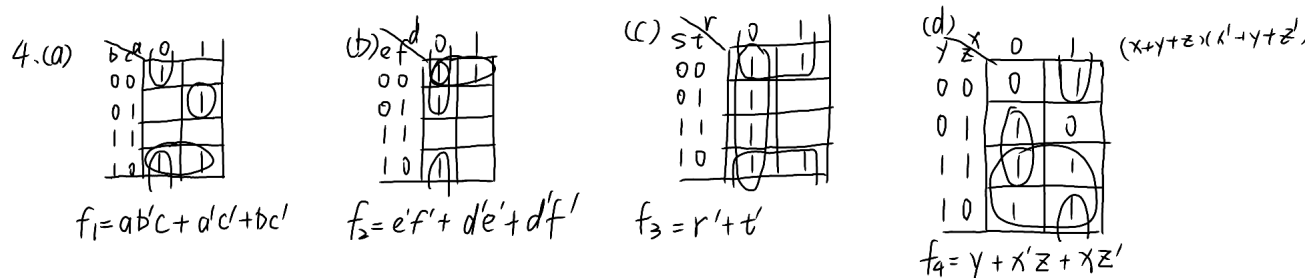 4.(a)
bc a 0 1
00 1
01 1
11
10 1 1
f₁ = ab'c + a'c' + bc'
(b) ef d 0 1
00 1 1
01 1
11
10 1
f₂ = e'f' + d'e' + d'f'
(c) st r 0 1
00 1 1
01 1
11 1
10 1 1
f₃ = r' + t'
(d) yz x 0 1
00 0 1
01 1 0
11 1 1
10 1 1
(x+y+z)(x'+y+z')
f₄ = y + x'z + xz'